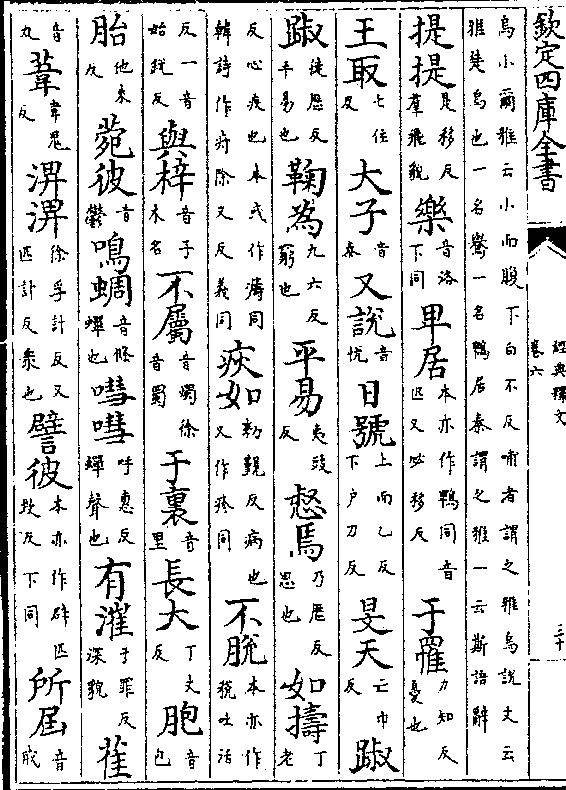 欽定四庫全書
經典釋文
卷六
三十
烏小爾雅云小而腹下白不反哺者謂之雅烏說文云
雅楚烏也一名鸒一名鵯居秦謂之雅一云斯語辭
提提是移反羣飛貌樂音洛下同卑居本亦作鵯同音匹又必移反于罹力知反憂也
王取七住反大子音泰又說音悅日號上而乙反下戶刀反旻天亡巾反踧
踧徒歷反平易也鞠為九六反窮也平易夷豉反惄焉乃歷反思也如擣丁老
反心疾也本或作㿒同韓詩作疛除又反義同疢如勑覲反病也又作疹同不脫本亦作稅吐活
反一音始銳反與梓音子木名不屬音蜀徐音蜀于裏音里長大丁丈反胞音包
胎他來反菀彼音鬱鳴蜩音條蟬也嘒嘒呼惠反蟬聲也有漼千罪反深貌萑
音丸葦韋鬼反淠淠徐孚計反又匹計反衆也譬彼本亦作辟匹致反下同所屆音戒